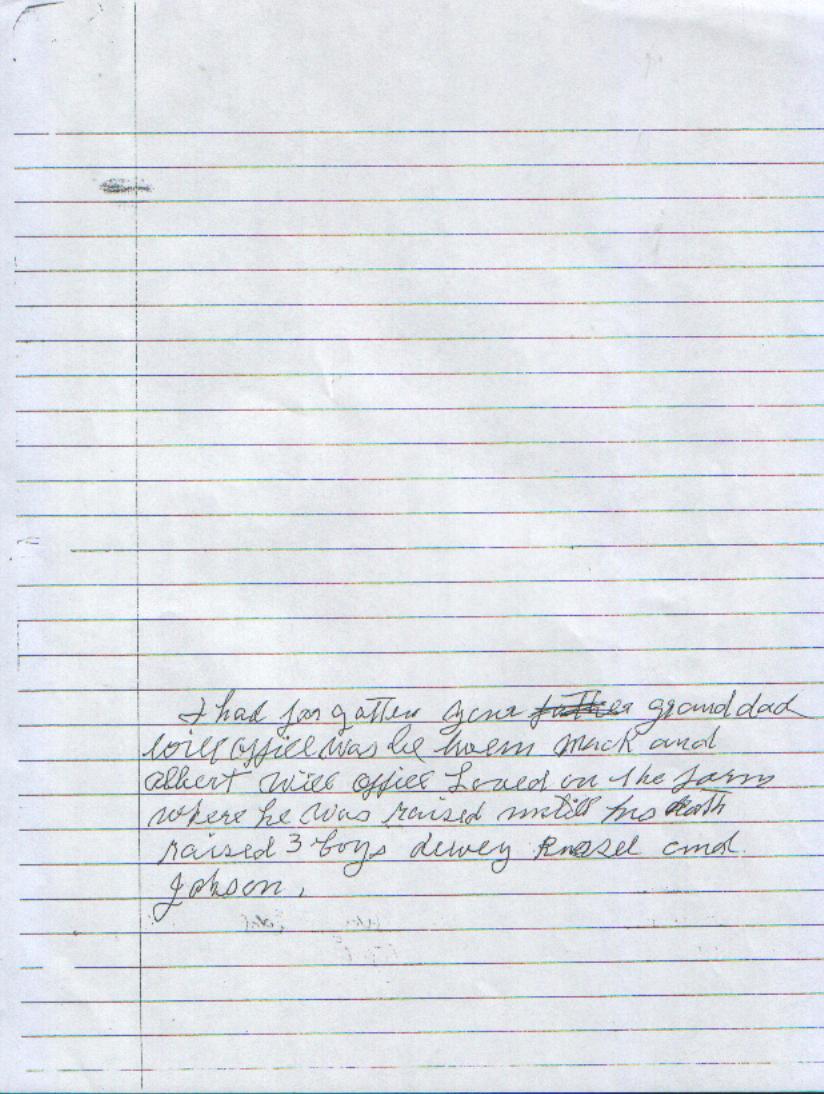 I had forgotten your father granddad
Will Office was be tween Mack and
Albert Will Office Lived on the farm
where he was raised untill his death
raised 3 boys dewey Russel and
Johson,